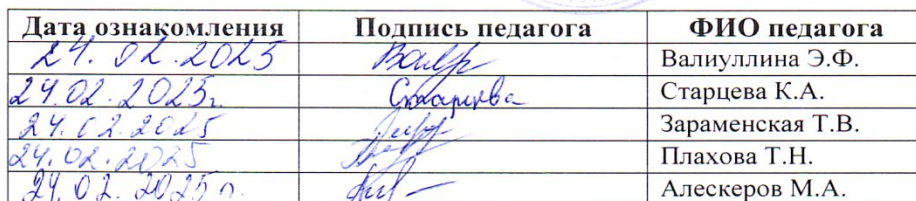 Дата ознакомления Подпись педагога ФИО педагога
24.02.2025 Валиуллина Э.Ф.
24.02.2025г. Старцева Старцева К.А.
24.02.2025 Зараменская Т.В.
24.02.2025 Плахова Т.Н.
24.02.2025г. Алескеров М.А.